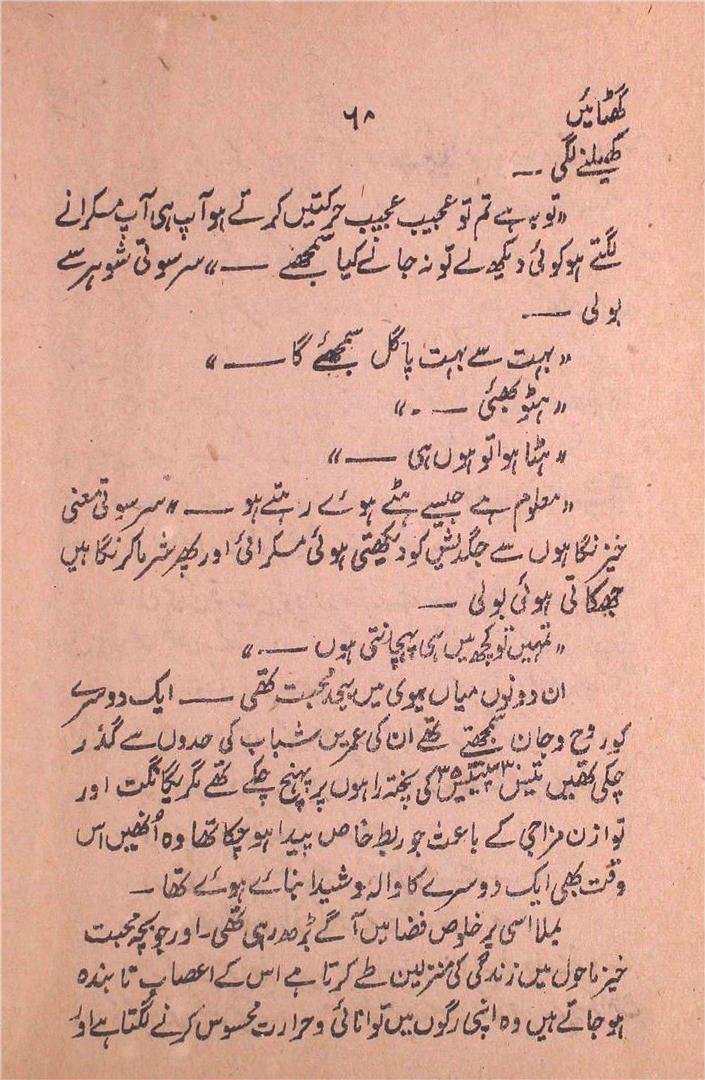 گھٹائیں ۶۸
کھیلنے لگی ۔۔
"توبہ ہے تم تو عجیب عجیب حرکتیں کرتے ہو آپ ہی آپ مسکرانے
لگتے ہو کوئی دیکھ لے تو نہ جانے کیا سمجھے ــــ" سرسوتی شوہر سے
بولی ــــ
"بہت سے بہت پاگل سمجھئے گا ــــ"
"ہٹو بھئی ــــ۔"
"ہٹا ہوا تو ہوں ہی ــــ"
"معلوم ہے جیسے ہٹے ہوئے رہتے ہو ــــ" سرسوتی معنی
خیز نگاہوں سے جگدیش کو دیکھتی ہوئی مسکرائی اور پھر شرما کر نگاہیں
جھکاتی ہوئی بولی ــــ
"تمہیں تو کچھ میں ہی پہچانتی ہوں ــــ۔"
ان دونوں میاں بیوی میں بیحد محبت تھی ــــ ایک دوسرے
کو روح و جان سمجھتے تھے ان کی عمریں شباب کی حدوں سے گذر
چکی تھیں تیس۳۰ پینتیس۳۵ کی پختہ راہوں پر پہنچ چکے تھے مگر یگانگت اور
توازن مزاجی کے باعث جو ربط خاص پیدا ہو چکا تھا وہ اُنھیں اس
وقت بھی ایک دوسرے کا والہ و شیدا بنائے ہوئے تھا ۔
بملا اسی پر خلوص فضا میں آگے بڑھ رہی تھی۔ اور جو بچہ محبت
خیز ماحول میں زندگی کی منزلیں طے کرتا ہے اس کے اعصاب تابندہ
ہو جاتے ہیں وہ اپنی رگوں میں توانائی و حرارت محسوس کرنے لگتا ہے اور